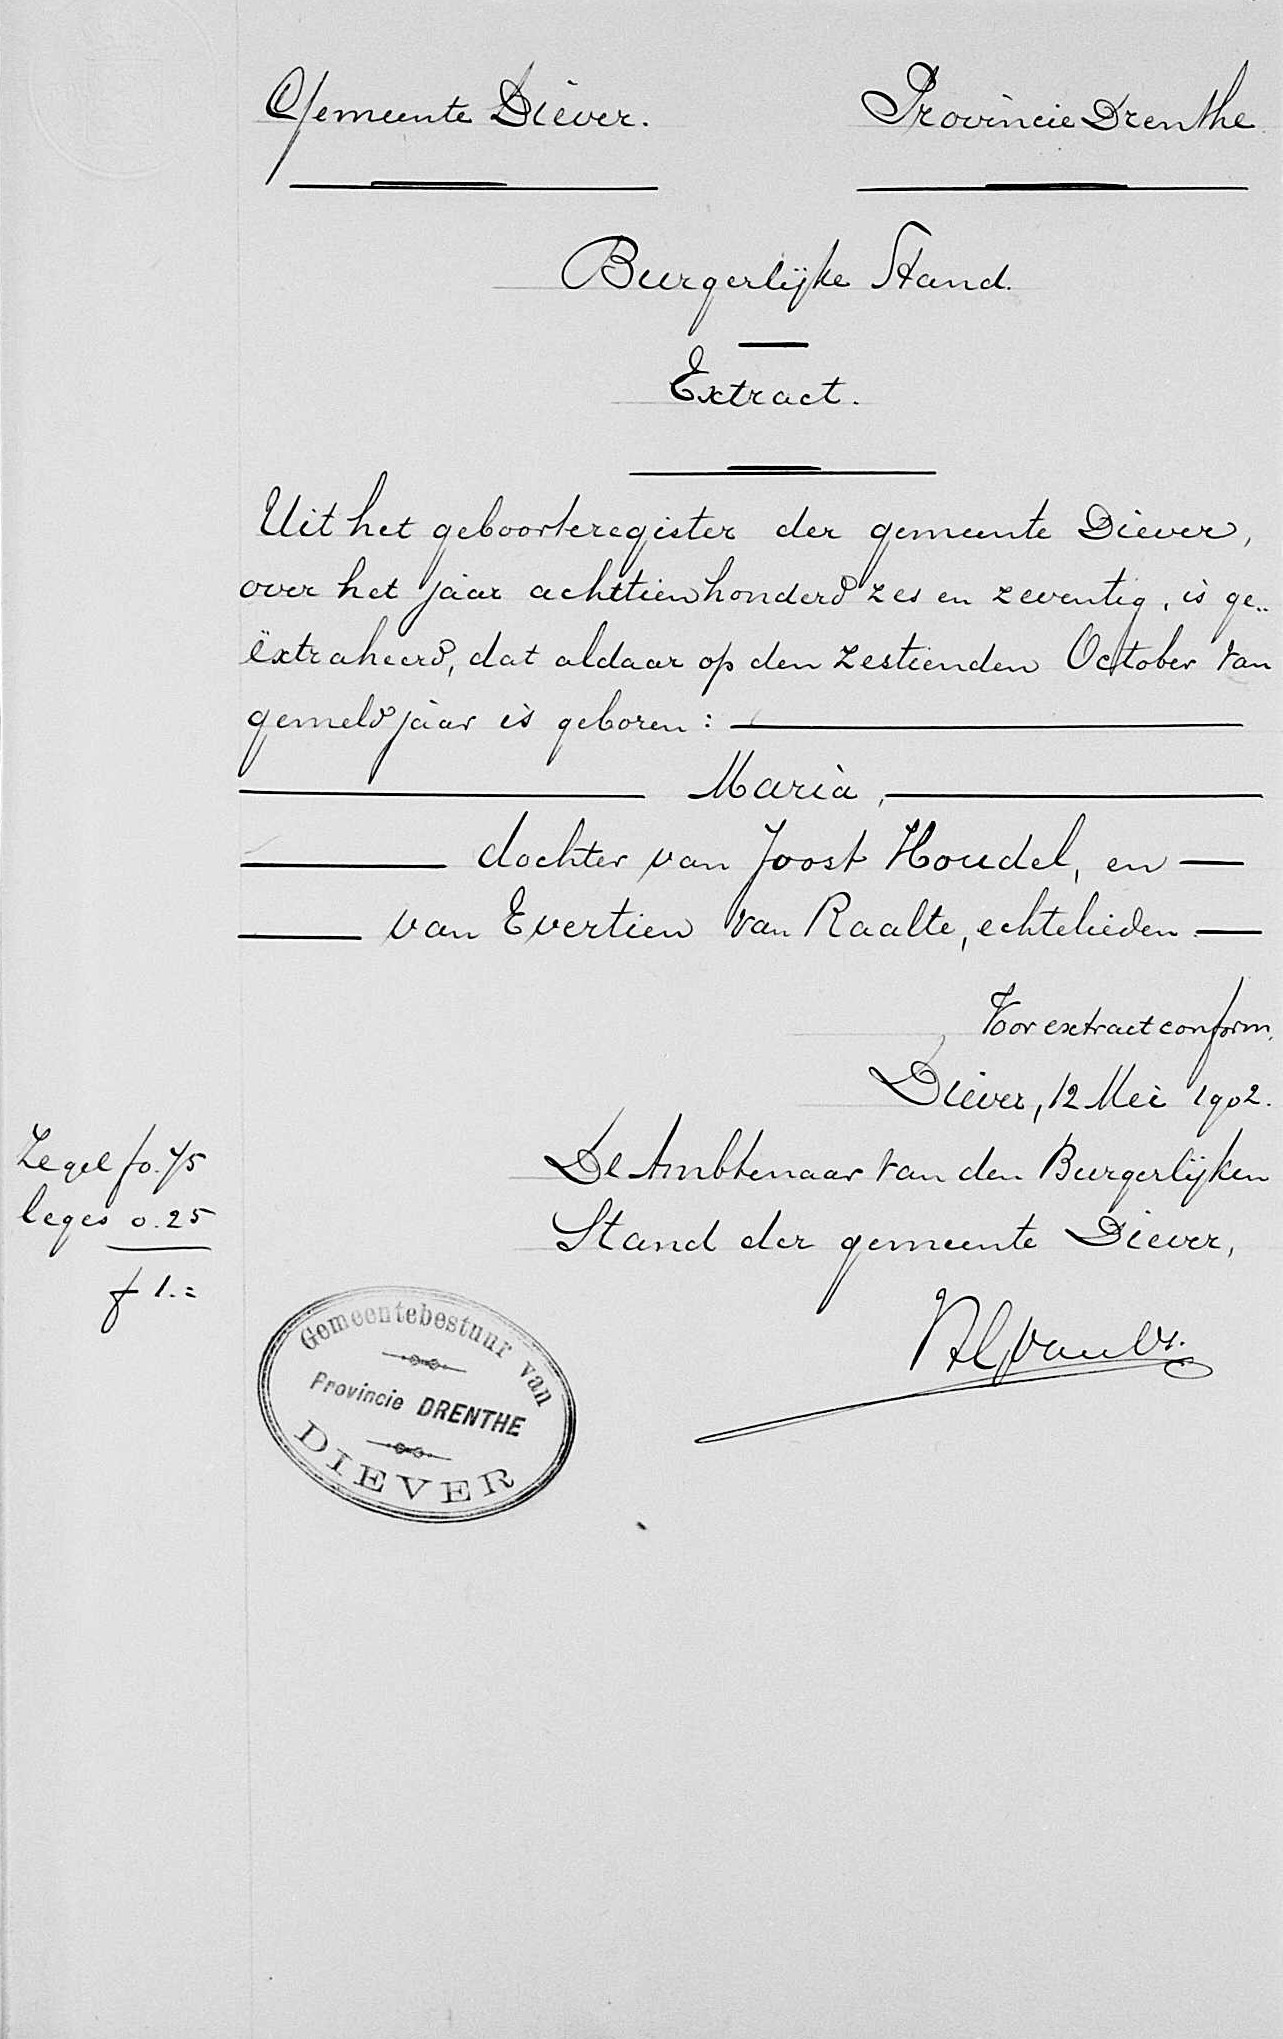 Gemeente Diever. Provincie Drenthe
Burgerlijke Stand.
Extract.
Uit het geboorteregister der gemeente Diever,
over het jaar achttienhonderd zes en zeventig, is ge..
ëxtraheerd, dat aldaar op den zestienden October van
gemeld jaar is geboren:
Maria,
dochter van Joost Houdel, en
van Evertien van Raalte, echtelieden.
Voor extract conform,
Diever, 12 Mei 1902.
De Ambtenaar van den Burgerlijken
Stand der gemeente Diever,
Zegel fo.75
leges 0.25
f 1.=
Gemeentebestuur van
Provincie DRENTHE
DIEVER